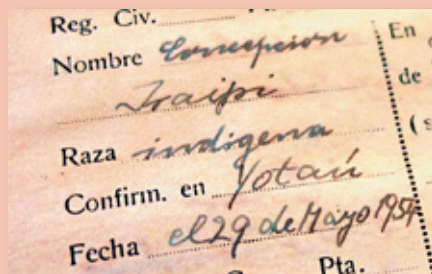 Reg. Civ.
Nombre Concepcion
Iraipi
Raza indigena
Confirm. en Yotaú
Fecha el 29 de Mayo 1954
Pta.
En
de
(s